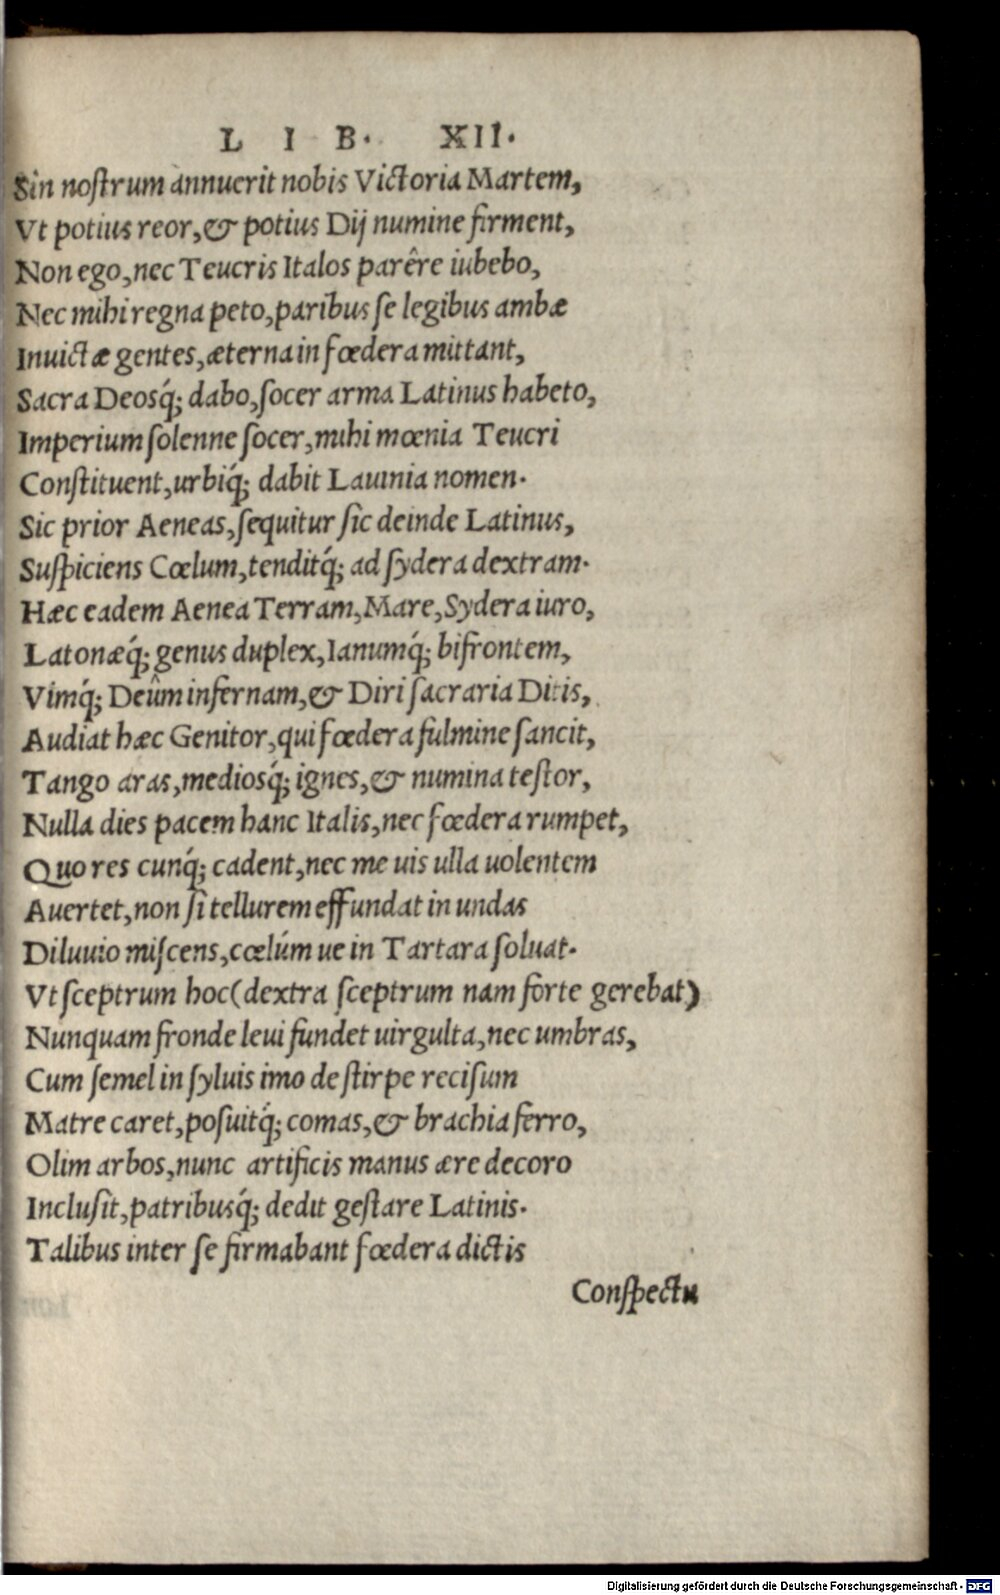 L I B. XII.
Sin noſtrum ànnuerit nobis Victoria Martem,
Vt potius reor, & potius Dij numine firment,
Non ego, nec Teucris Italos parêre iubebo,
Nec mihi regna peto, paribus ſe legibus ambæ
Inuictæ gentes, æterna in fœdera mittant,
Sacra Deosq́; dabo, ſocer arma Latinus habeto,
Imperium ſolenne ſocer, mihi mœnia Teucri
Conſtituent, urbiq́; dabit Lauinia nomen.
Sic prior Aeneas, ſequitur ſic deinde Latinus,
Suſpiciens Cœlum, tenditq́; ad ſydera dextram.
Hæc eadem Aenea Terram, Mare, Sydera iuro,
Latonæq́; genus duplex, Ianumq́; bifrontem,
Vimq́; Deûm infernam, & Diri ſacraria Ditis,
Audiat hæc Genitor, qui fœdera fulmine ſancit,
Tango aras, mediosq́; ignes, & numina teſtor,
Nulla dies pacem hanc Italis, nec fœdera rumpet,
Quo res cunq́; cadent, nec me uis ulla uolentem
Auertet, non ſi tellurem effundat in undas
Diluuio miſcens, cœlúm ue in Tartara ſoluat.
Vt ſceptrum hoc (dextra ſceptrum nam forte gerebat)
Nunquam fronde leui fundet uirgulta, nec umbras,
Cum ſemel in ſyluis imo de ſtirpe reciſum
Matre caret, poſuitq́; comas, & brachia ferro,
Olim arbos, nunc artificis manus ære decoro
Incluſit, patribusq́; dedit geſtare Latinis.
Talibus inter ſe firmabant fœdera dictis
Conſpectu
Digitalisierung gefördert durch die Deutsche Forschungsgemeinschaft - DFG